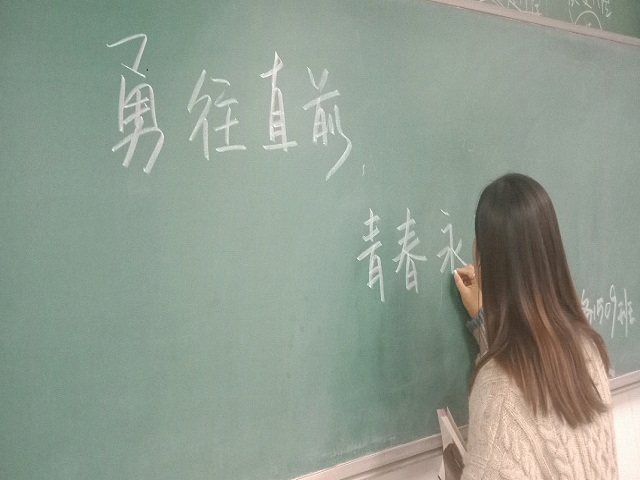 勇往直前,
青春永
1509班